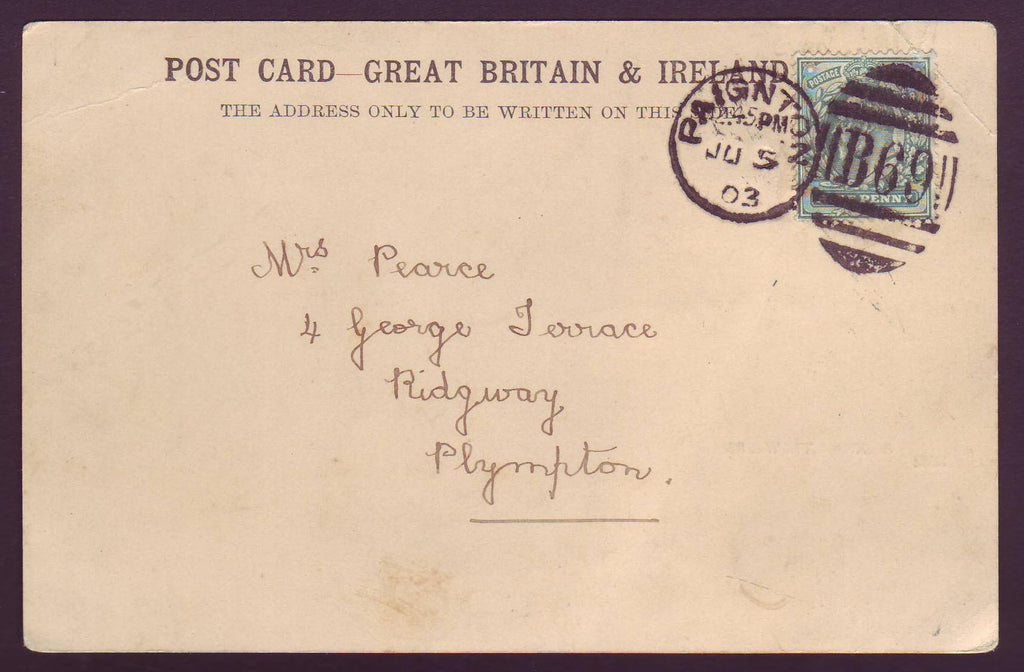 POST CARD—GREAT BRITAIN & IRELAND
THE ADDRESS ONLY TO BE WRITTEN ON THIS SIDE
POSTAGE
PAIGNTON
45PM
JU 5
03
B69
PENNY
Mrs. Pearce
4 George Terrace
Ridgway
Plympton.